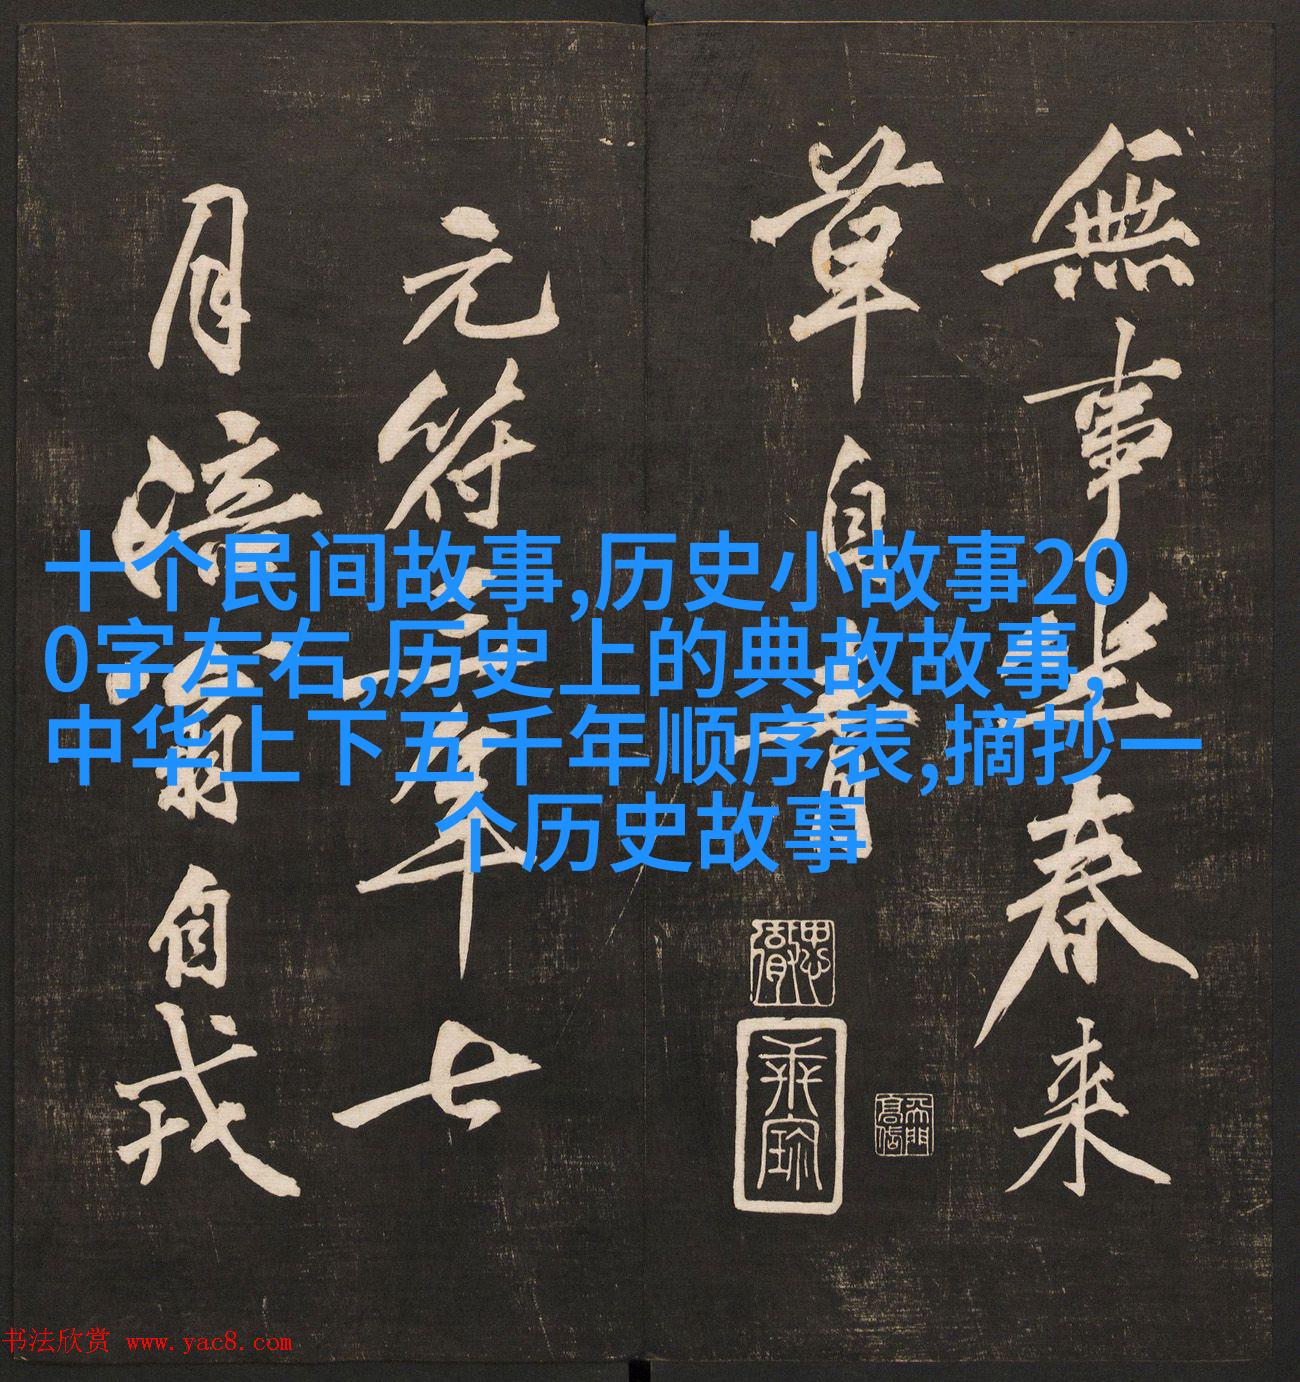 無事坐春来
草自青
元符三年七
月涪翁自戎
十个民间故事,历史小故事20
0字左右,历史上的典故故事,
中华上下五千年顺序表,摘抄一
个历史故事
书法欣赏 www.yac8.com